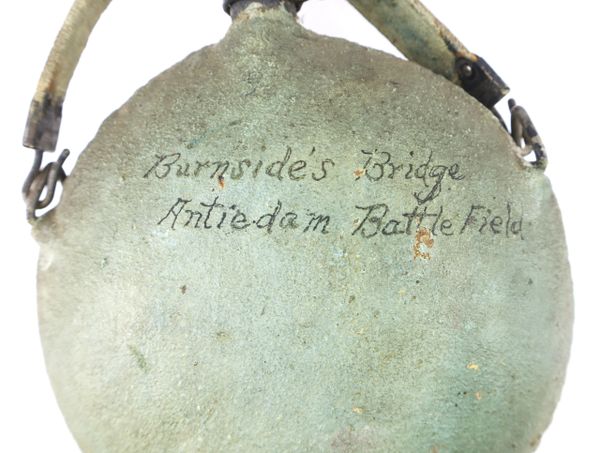 Burnside's Bridge
Antiedam Battle Field